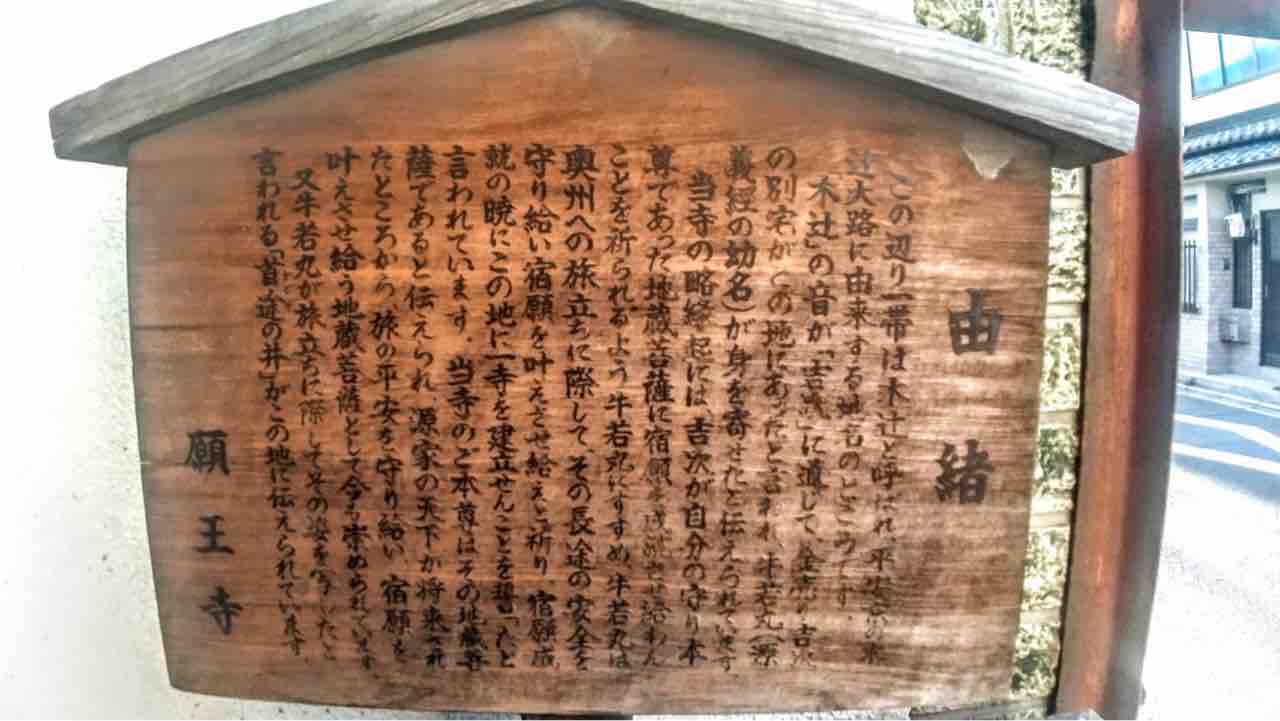 由緒
この辺り一帯は木辻と呼ばれ、平安京の木
辻大路に由来する地名のところです。
木辻」の音が「吉次」に通じて、金売り吉次
の別宅がこの地にあったと言われ、牛若丸(源
義経の幼名)が身を寄せたと伝えられています
当寺の略縁起には、吉次が自分の守り本
尊であった地蔵菩薩に宿願を成就させ給わん
ことを祈られるよう牛若丸にすすめ、牛若丸は
奥州への旅立ちに際して、その長途の安全を
守り給い宿願を叶えさせ給えと祈り、宿願成
就の暁にこの地に一寺を建立せんことを誓ったと
言われています。当寺のご本尊はその地蔵菩
薩であると伝えられ、源家の天下が将来され
たところから、旅の平安を守り給い、宿願を
叶えさせ給う地蔵菩薩として今も崇められています
又牛若丸が旅立ちに際してその姿を写したと
言われる「首途の井」がこの地に伝えられています。
願王寺